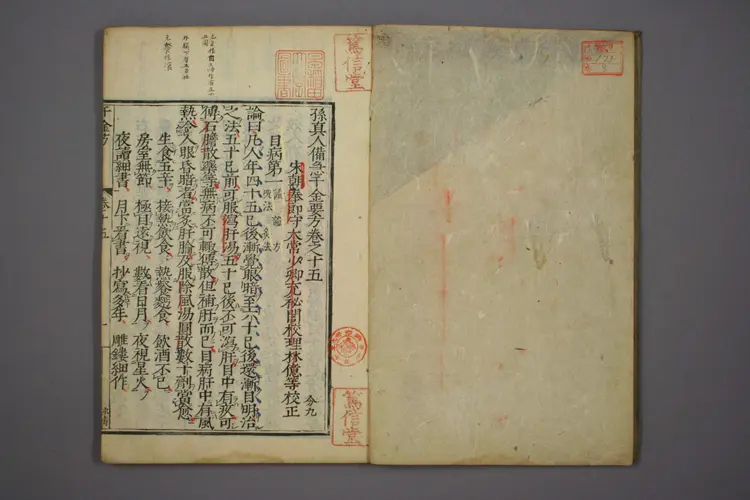 孫真人備急千金要方卷之十五
宋朝奉郎守太常少卿充秘閣校理林億等校正
目病第一 論 方 灸法
論曰凡人年四十五已後漸覺眼暗至六十已後還漸目明治
之法五十已前可服瀉肝湯五十已後不可瀉肝目中有疾可
傅石膽散藥等無病不可輒傅散但補肝而已目病肝中有風
熱令人眼昏暗者當灸肝腧及服除風湯圓散數十劑當愈
生食五辛、 接熱飲食、 熱飡麵食、 飲酒不已、
房室無節、 極目遠視、 數看日月、 夜視星火、
夜讀細書、 月下看書、 抄寫多年、 雕鏤細作、
千金方 卷十五
篤信堂
篤信堂